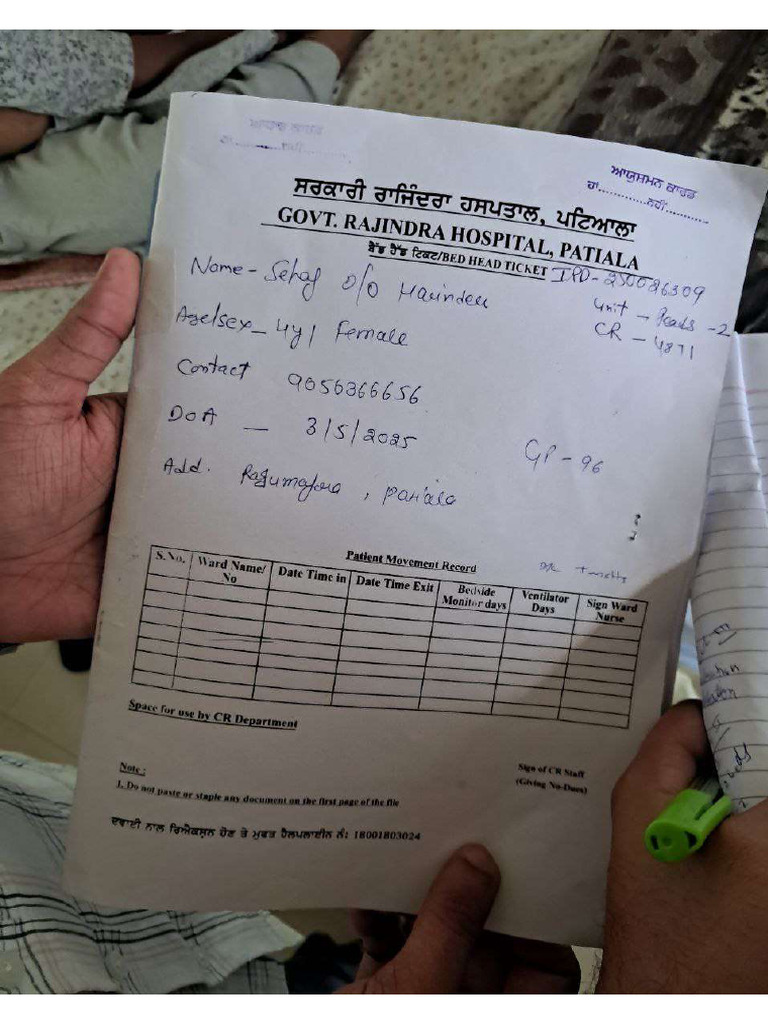 ਆਯੁਸ਼ਮਾਨ ਕਾਰਡ
ਹਾਂ..............ਨਹੀਂ............
ਸਰਕਾਰੀ ਰਾਜਿੰਦਰਾ ਹਸਪਤਾਲ, ਪਟਿਆਲਾ
GOVT. RAJINDRA HOSPITAL, PATIALA
ਬੈੱਡ ਹੈੱਡ ਟਿਕਟ/BED HEAD TICKET IPD-250026309
Name - Sehaj D/O Harinder
Unit - Peads - 2
CR - 4871
Age/sex - 4y/ Female
Contact 9056366656
DOA - 3/5/2025
GP - 96
Add. , Patiala
Patient Movement Record
S.No. Ward Name/ No Date Time in Date Time Exit Bedside Monitor days Ventilator Days Sign Ward Nurse
Space for use by CR Department
Note :
Sign of CR Staff
(Giving No-Dues)
1. Do not paste or staple any document on the first page of the file
ਦਵਾਈ ਨਾਲ ਰਿਐਕਸ਼ਨ ਹੋਣ ਤੇ ਮੁਫਤ ਹੈਲਪਲਾਈਨ ਨੰ: 18001803024